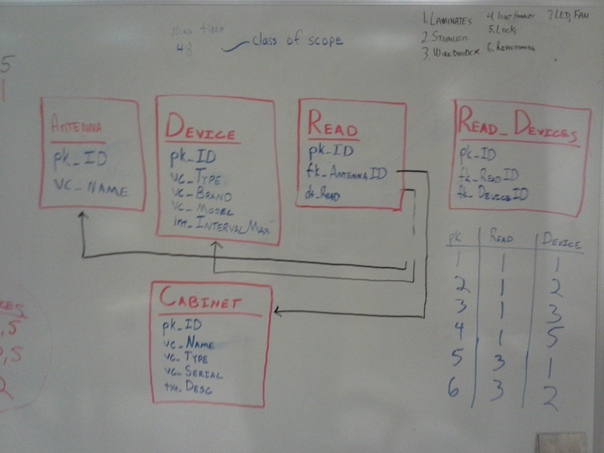 1. LAMINATES
4.
7. LED, FAN
2.
5. Lock,
3.
6.
class of scope
48
5
1
ANTENNA
pk_ID
VC_NAME
DEVICE
pk_ID
VC_TYPE
VC_BRAND
VC_MODEL
int_INTERVALMAX
READ
pk_ID
fk_ANTENNAID
dt_READ
READ_DEVICES
pk_ID
fk_READID
fk_DEVICEID
CABINET
pk_ID
VC_NAME
VC_TYPE
VC_SERIAL
txt_DESC
PK READ DEVICE
1 1 1
2 1 2
3 1 3
4 1 5
5 3 1
6 3 2
,5
,5
2